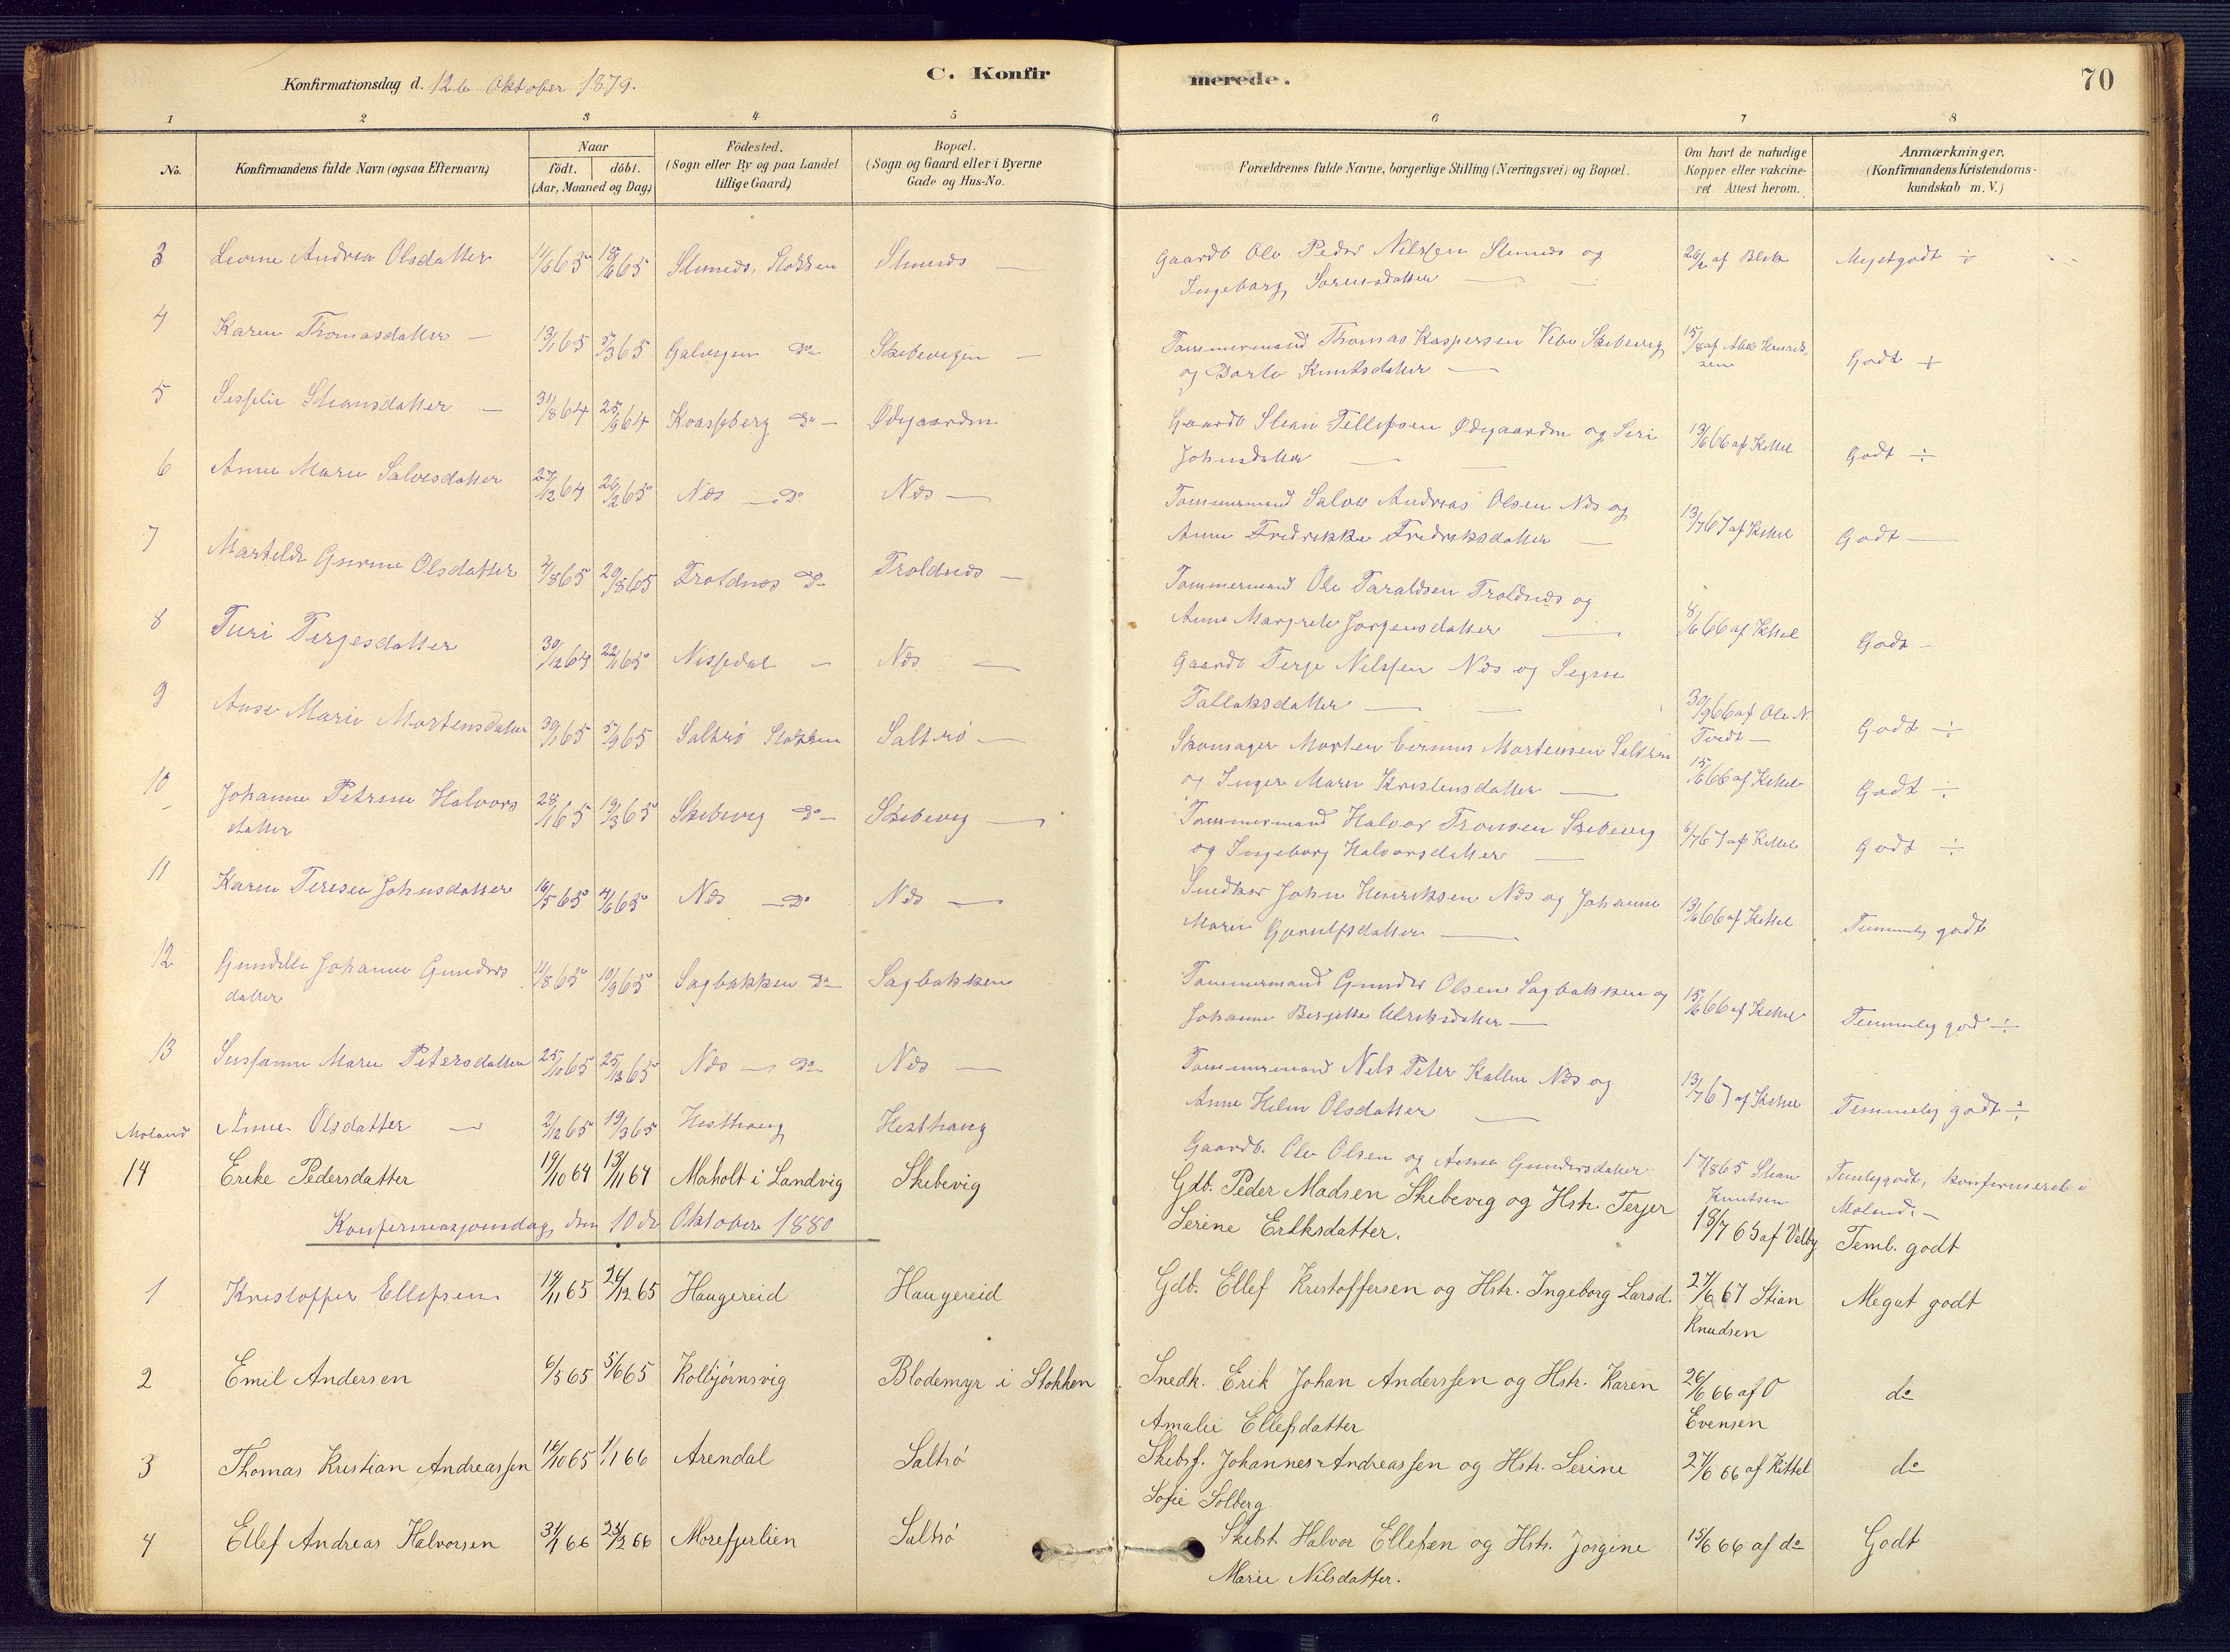 Konfirmationsdag d. 12te Oktober 1879.
C. Konfirmerede.
70
1 2 3 4 5 6 7 8
No.
Konfirmandens fulde Navn (ogsaa Efternavn)
Naar
födt. döbt.
(Aar, Maaned og Dag)
Födested.
(Sogn eller By og paa Landet
tillige Gaard)
Bopæl.
(Sogn og Gaard eller i Byerne
Gade og Hus-No.
Forældrenes fulde Navne, borgerlige Stilling (Næringsvei) og Bopæl.
Om havt de naturlige
Kopper eller vakcine-
ret Attest herom.
Anmærkninger.
(Konfirmandens Kristendoms-
kundskab m. V.)
3 Andrea Olsdatter 11/6 65 18/6 65 Stokken Gaardb Ole Peder Nilssen og Megetgodt ÷
Ingeborg Sørensdatter —
4 Karen Thomasdatter — 13/1 65 5/3 65 do Skibevigen — Tømmermand Thomas Kaspersen Skibevig 15/8 af Godt +
og Knutsdatter —
5 Stiansdatter — 31/8 64 25/9 64 do — Ødegaarden Gaardb Stian Tellefsen Ødegaarden og Siri 13/6 66 af Kittel Godt ÷
Johnsdatter —
6 Anne Marie Salvesdatter 27/12 64 26/2 65 Næs — do Næs — Tømmermand Salve Andreas Olsen Næs og 13/7 67 af Kittel Godt —
Anne Fredrikke Fredriksdatter —
7 Olsdatter 4/8 65 20/8 65 Troldnæs do Troldnæs — Tømmermand Ole Taraldsen Troldnæs og 8/6 66 af Kittel Godt —
Anne Margrete Jørgensdatter —
8 Turi Terjesdatter 30/12 64 22/1 65 Nissedal — Næs — Gaardb Terje Nilssen Næs og Signe 30/9 66 af Ole N. Godt ÷
Tallaksdatter — Tvedt —
9 Anne Marie Mortensdatter 30/1 65 5/9 65 Saltrø Stokken Saltrø — Skomager Morten Mortensen Saltrø 15/6 66 af Kittel Godt ÷
og Inger Marie Kristensdatter —
10 Johanne Petrine Halvors 28/1 65 19/3 65 Skibevig do — Skibevig — Tømmermand Halvor Tronsen Skibevig 6/7 67 af Kittel Godt ÷
datter og Ingeborg Halvorsdatter —
11 Karen Terese Johnsdatter 16/5 65 4/6 65 Næs — do Næs — Snedker John Henriksen Næs og Johanne 13/6 66 af Kittel Temmelig godt
Marie —
12 Johanne Gunders 11/8 65 10/9 65 Sagbakken do Sagbakken Tømmermand Gunder Olsen Sagbakken og 15/6 66 af Kittel Temmelig god ÷
datter Johanne Ulriksdatter —
13 Susanne Marie Petersdatter 25/10 65 65 Næs — do Næs — Tømmermand Nils Peter Næs og 13/7 67 af Kittel Temmelig godt ÷
Anne Helene Olsdatter —
Moland Anne Olsdatter — 2/12 65 19/3 65 Hesthaug Hesthaug Gaardb. Ole Olsen og Anna Gundersdatter 17/8 65 Stian Knutsen Temligodt, konfirmeret i
Moland. —
14 Erike Pedersdatter 19/10 64 13/11 64 Moholt i Landvig Skibevig Gdb. Peder Madsen Skibevig og Hstr. Terjer 18/7 65 af Velby Temb. godt
Serine Eriksdatter.
Konfirmasjonsdag den 10de Oktober 1880
1 Kristoffer Ellefsen 14/11 65 26/12 65 Haugereid Haugereid Gdb. Ellef Kristoffersen og Hstr. Ingeborg Larsd. 27/6 67 Stian Meget godt
Knudsen
2 Emil Andersen 6/5 65 5/6 65 Kolbjørnsvig Blodemyr i Stokken Snedk. Erik Johan Anderssen og Hstr. Karen 26/6 66 af O do
Amalie Ellefsdatter Evensen
3 Thomas Kristian Andreassen 16/10 65 1/1 66 Arendal Saltrø Skibsf. Johannes Andreassen og Hstr. Serine 27/6 66 af Kittel do
Sofie Solberg
4 Ellef Andreas Halvorsen 31/1 66 25/2 66 Morefjerlien Saltrø Skibst. Halvor Ellefsen og Hstr. Jorgine 15/6 66 af do Godt
Marie Nilsdatter.